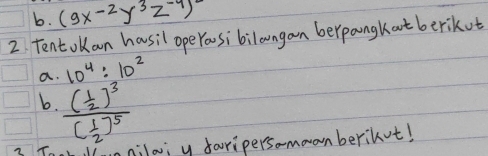 b. (9x⁻²y³z⁻⁴)
2. Tentukan hasil operasi bilangan berpangkat berikut
a. 10⁴ : 10²
b. (1/2)³
(1/2)⁵
nilai y dari persamaan berikut!